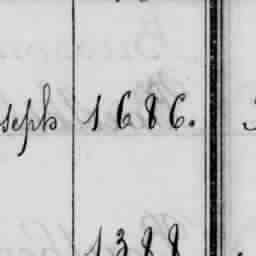 seph 1686.
1388